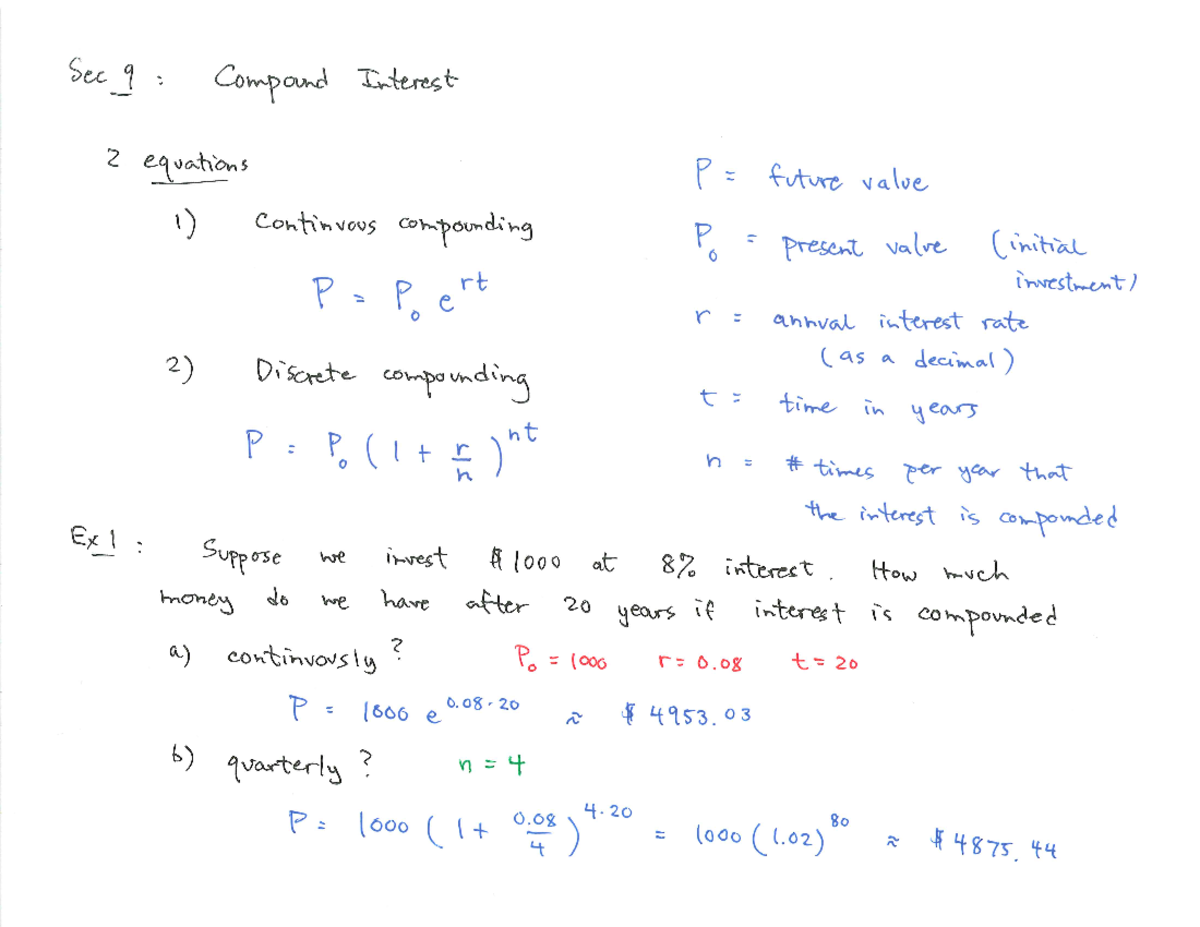 Sec 9 : Compound Interest
2 equations
1) Continuous compounding
P = P₀ e^(rt)
2) Discrete compounding
P = P₀ (1 + r/n)^(nt)
P = future value
P₀ = present value (initial
investment)
r = annual interest rate
(as a decimal)
t = time in years
n = # times per year that
the interest is compounded
Ex 1 : Suppose we invest $1000 at 8% interest. How much
money do we have after 20 years if interest is compounded
a) continuously? P₀ = 1000 r = 0.08 t = 20
P = 1000 e^(0.08·20) ≈ $4953.03
b) quarterly? n = 4
P = 1000 (1 + 0.08/4)^(4·20) = 1000 (1.02)^80 ≈ $4875.44